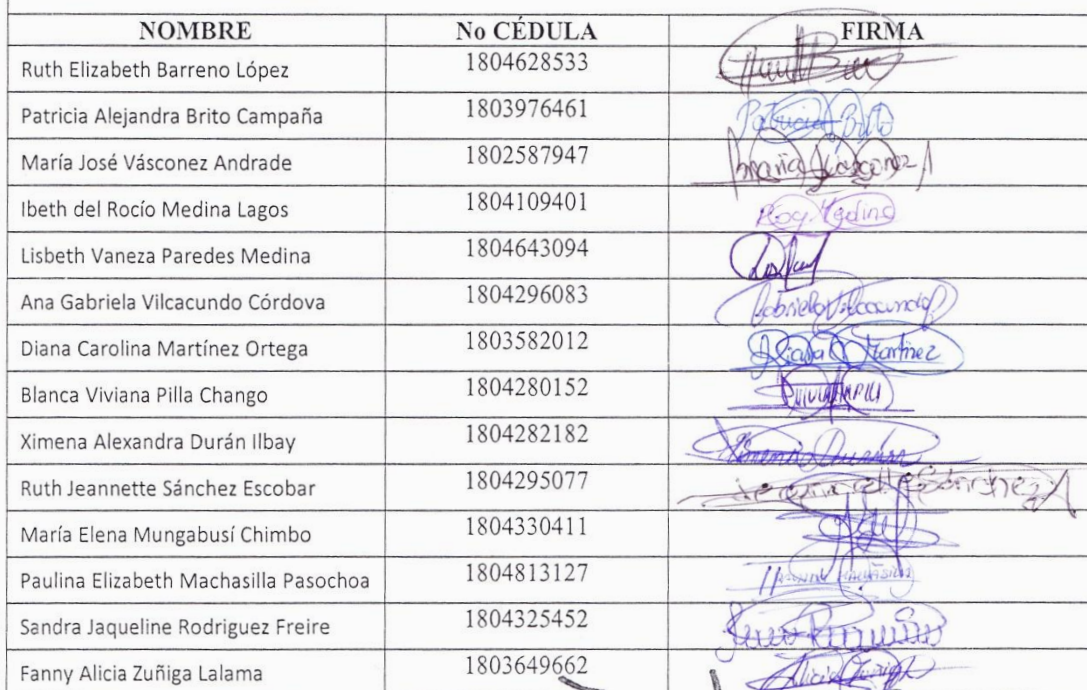 NOMBRE No CÉDULA FIRMA
Ruth Elizabeth Barreno López 1804628533
Patricia Alejandra Brito Campaña 1803976461 Patricia Brito
María José Vásconez Andrade 1802587947 María Vásconez A
Ibeth del Rocío Medina Lagos 1804109401 Medina
Lisbeth Vaneza Paredes Medina 1804643094
Ana Gabriela Vilcacundo Córdova 1804296083 Gabriela Vilcacundo
Diana Carolina Martínez Ortega 1803582012 Diana C Martinez
Blanca Viviana Pilla Chango 1804280152
Ximena Alexandra Durán Ilbay 1804282182 Ximena Durán
Ruth Jeannette Sánchez Escobar 1804295077 Sánchez
María Elena Mungabusí Chimbo 1804330411
Paulina Elizabeth Machasilla Pasochoa 1804813127
Sandra Jaqueline Rodriguez Freire 1804325452
Fanny Alicia Zuñiga Lalama 1803649662 Alicia Zuñiga